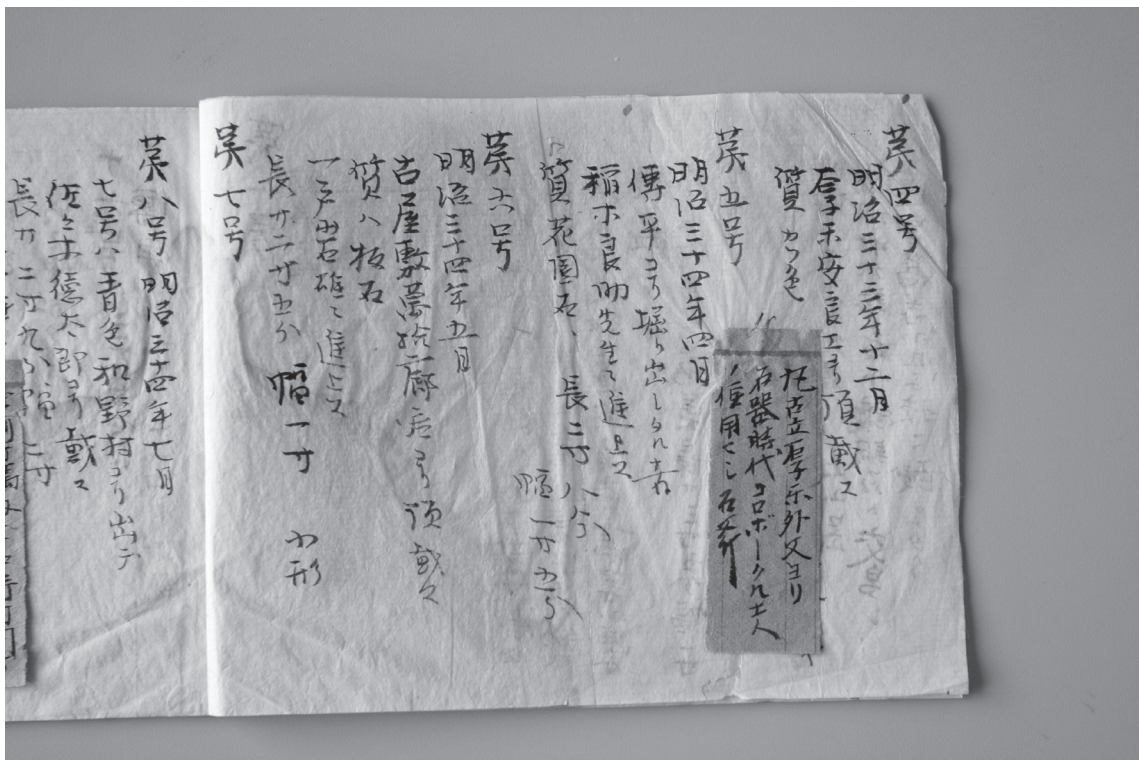 第四号
明治三十三年十二月
安良エヨリ頂戴ス
質 色
石器時代コロボークル土人
ノ使用セシ石斧
第五号
明治三十四年四月
傳平ヨリ堀り出シタル者
稲木良助先生ニ進上ス
質花園石、長二寸八分
幅一寸五分
第六号
明治三十四年五月
古屋敷萬拾 ヨリ頂戴ス
質ハ板石
一戸 進上ス
長サ二寸五分 幅一寸 小形
第七号
第八号 明治三十四年七月
七号ハ青色和野村ヨリ出デ
佐々木徳太郎ヨリ戴ス
長サ二寸九分幅二寸